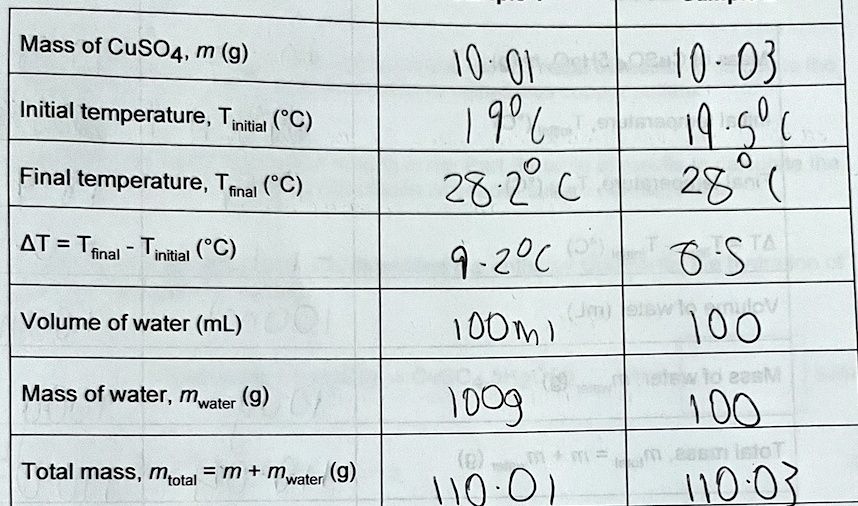 Mass of CuSO4, m (g) 10.01 10.03
Initial temperature, Tinitial (°C) 19°C 19.5°C
Final temperature, Tfinal (°C) 28.2°C 28°C
ΔT = Tfinal - Tinitial (°C) 9.2°C 8.5
Volume of water (mL) 100ml 100
Mass of water, mwater (g) 100g 100
Total mass, mtotal = m + mwater (g) 110.01 110.03